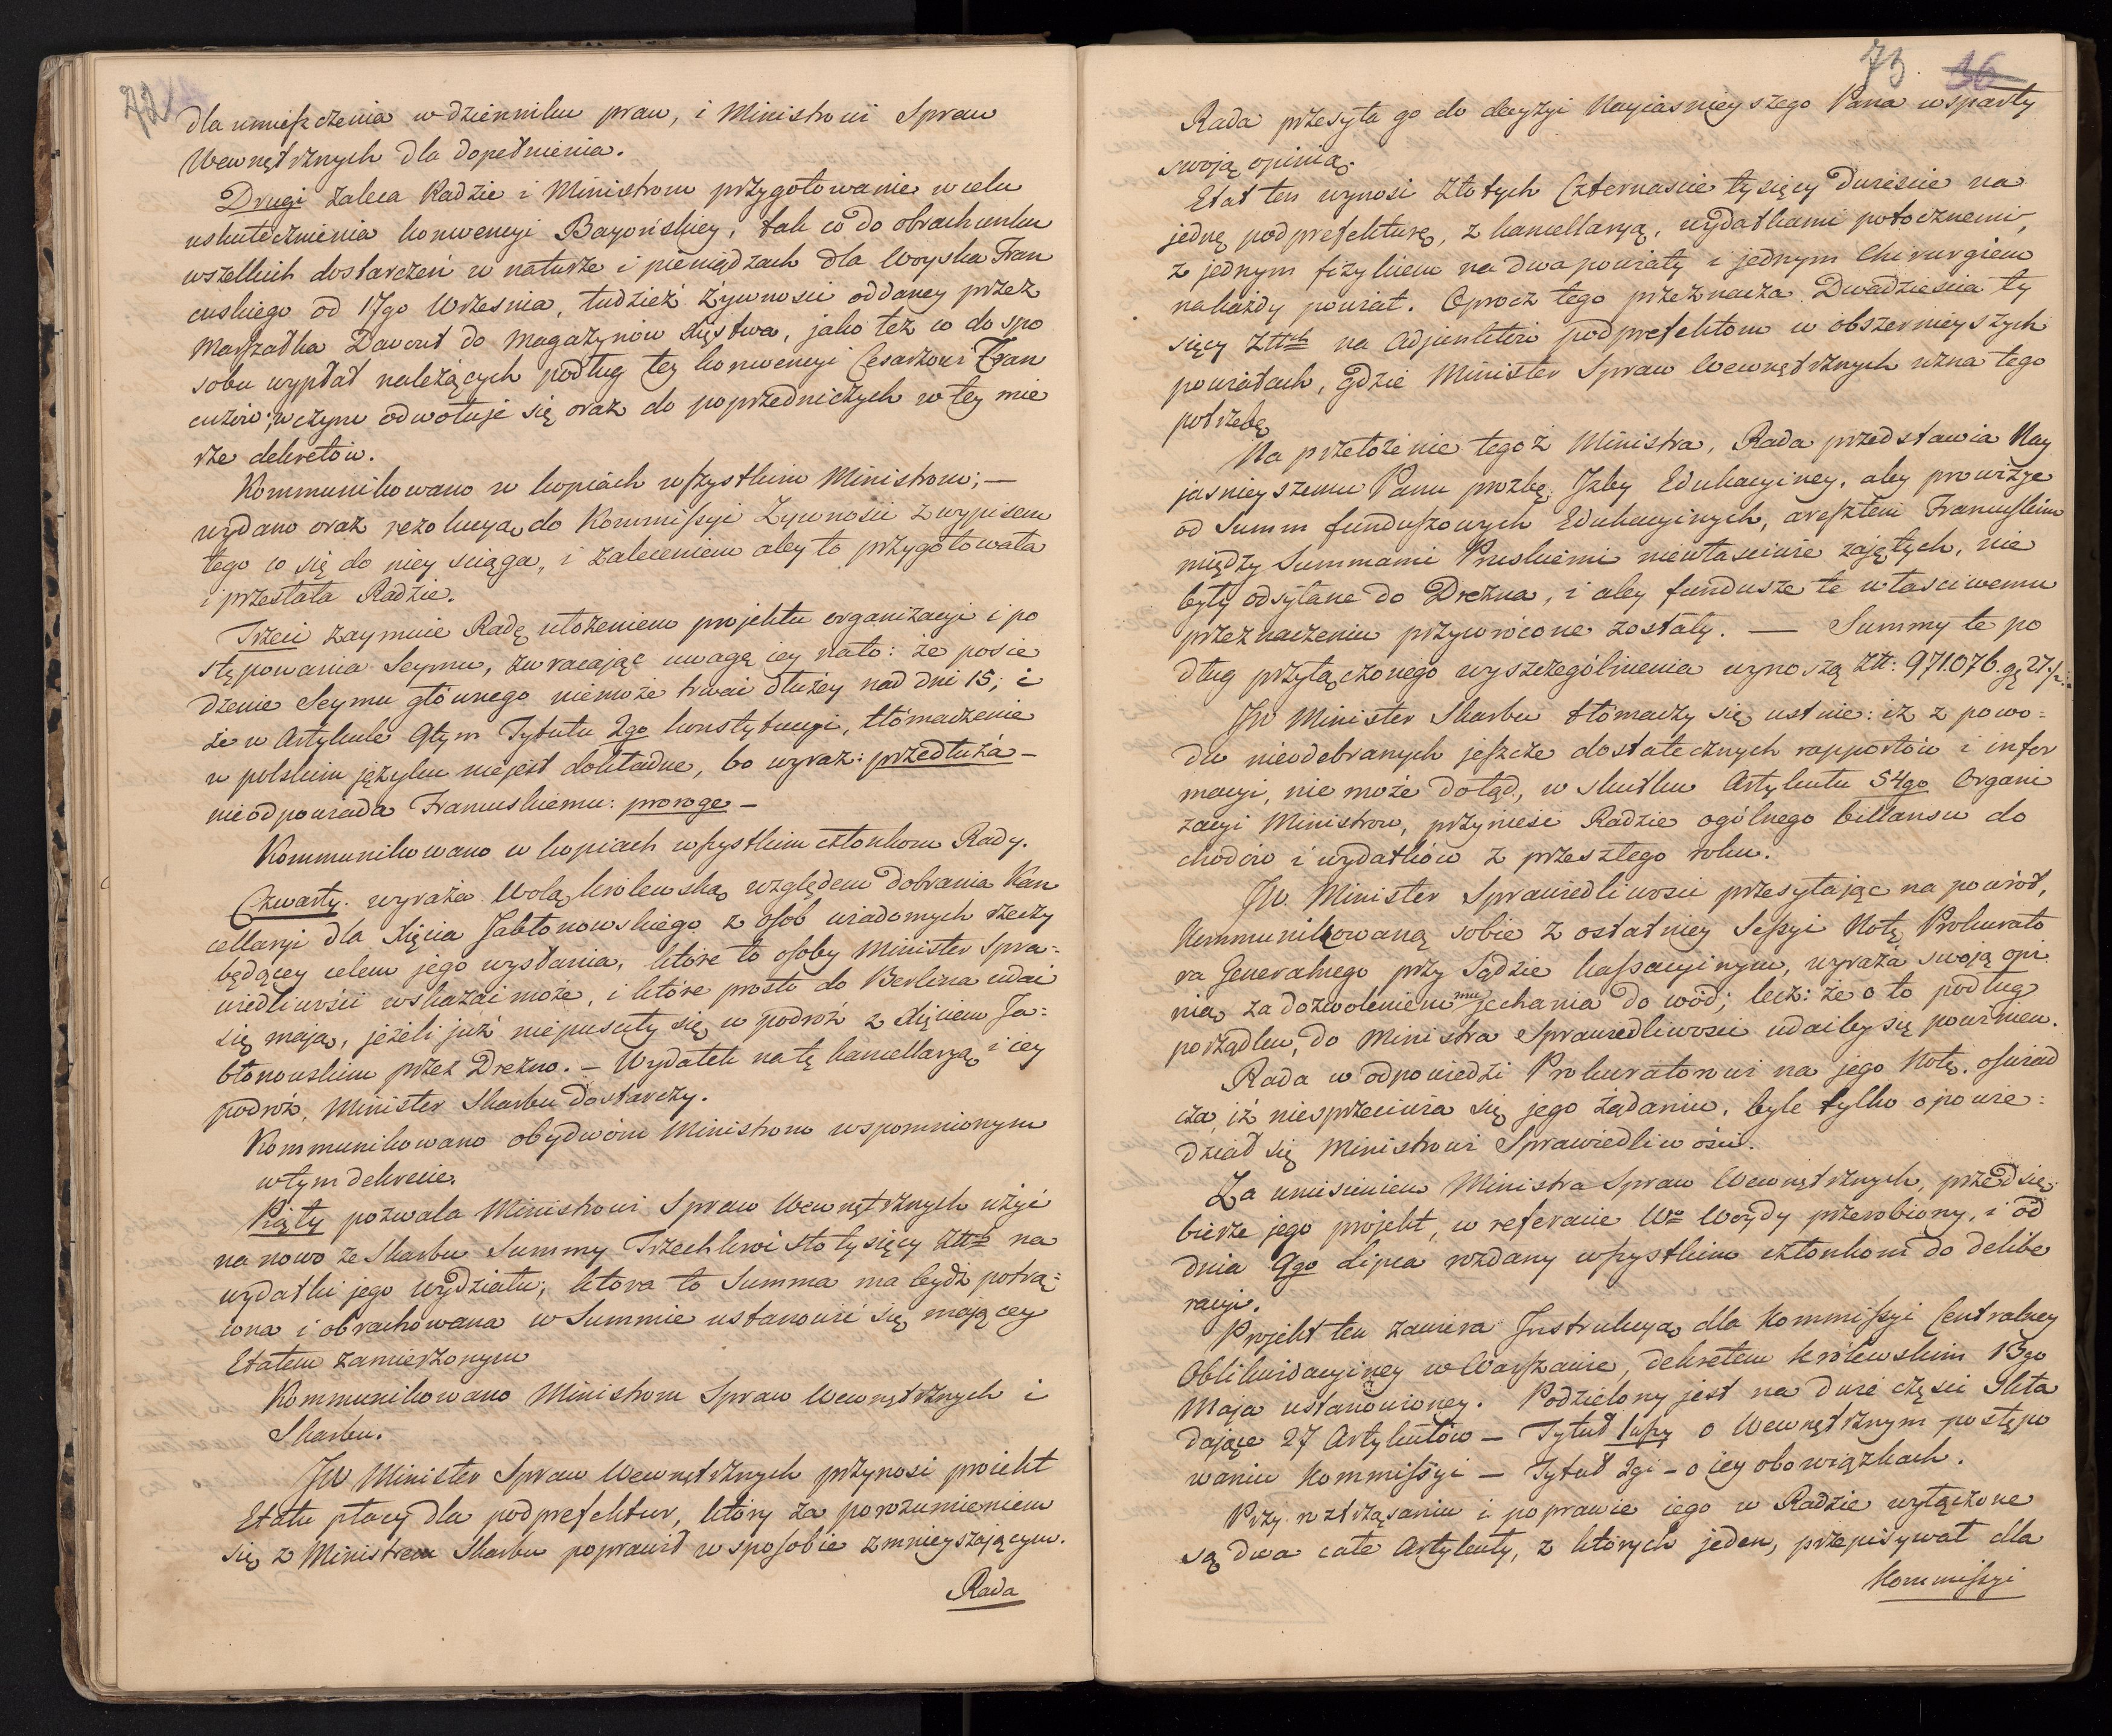 72
dla umieszczenia w dzienniku praw, i Ministrowi Spraw
Wewnętrznych dla dopełnienia.
Drugi zaleca Radzie i Ministrom przygotowanie w celu
uskutecznienia konwencyi Bayońskiey, tak co do obrachunku
wszelkich dostarczeń w naturze i pieniądzach dla Woyska Fran
cuskiego od 17go Wrzesnia, tudzież żywnosci oddaney przez
Marszałka Davout do Magazynów Xięstwa, jako też co do spo
sobu wypłat należących podług tey konwencyi Cesarzowi Fran
cuzów; w czym odwołuje się oraz do poprzedniczych w tey mie
rze dekretów.
Kommunikowano w kopiach wszystkim Ministrom; —
wydano oraz rezolucyą do Kommissyi Żywnosci z wypisem
tego co się do niey sciąga, i zaleceniem aby to przygotowała
i przesłała Radzie.
Trzeci zaymuie Radę ułożeniem projektu organizacyi i po
stępowania Seymu, zwracając uwagę iey na to: że posie
dzenie Seymu głównego niemoże trwać dłużey nad dni 15; i
że w Artykule 9tym Tytułu 2go konstytucyi, tłómaczenie
w polskim języku niejest dokładne, bo wyraz: przedłuża —
nieodpowiada Francuskiemu: proroge —
Kommunikowano w kopiach wszystkim członkom Rady.
Czwarty. wyraża Wolą królewską względem dobrania Kan
cellaryi dla Xięcia Jabłonowskiego z osob wiadomych rzeczy
będącey celem jego wysłania, które to osoby Minister Spra=
wiedliwości wskazać może, i które prosto do Berlina udać
się mają, jeżeli już niepuscity się w podróż z Xięciem Ja=
błonowskim przez Drezno. — Wydatek na tę kancellaryą i iey
podróż, Minister Skarbu dostarczy.
Kommunikowano obydwóm Ministrom wspomnionym
w tym dekrecie.
Piąty pozwala Ministrowi Spraw Wewnętrznych użyć
na nowo ze Skarbu Summy Trzechkroć sto tysięcy Złłch na
wydatki jego wydziału; ktora to Summa ma bydź potrą=
cona i obrachowana w Summie ustanowić się maiącey
Etatem zamierzonym
Kommunikowano Ministrom Spraw Wewnętrznych i
Skarbu.
JW Minister Spraw Wewnętrznych przynosi projekt
Etatu płacy dla podprefektur, który za porozumieniem
się z Ministrem Skarbu poprawił w sposobie zmnieyszającym.
Rada
73 36
Rada przesyła go do decyzyi Nayiasnieyszego Pana wsparty
swoją opinią.
Etat ten wynosi Złotych Czternascie tysięcy dwieście na
jednę podprefekturę, z kancellaryą, wydatkami potocznemi,
z jednym fizykiem na dwa powiaty i jednym Chirurgiem
na każdy powiat. Oprocz tego przeznacza Dwadziescia ty
sięcy Złłch na Adjunktów podprefektom w obszernieyszych
powiatach, gdzie Minister Spraw Wewnętrznych uzna tego
potrzebę
Na przełożenie tegoż Ministra, Rada przedstawia Nay
jasnieyszemu Panu prozbę Izby Edukacyiney, aby prowizye
od Summ funduszowych Edukacyinych, aresztem Francuskim
między Summami Pruskiemi niewłaściwie zajętych, nie
były odsyłane do Drezna, i aby fundusze te właściwemu
przeznaczeniu przywrócone zostały. — Summy te po
dług przyłączonego wyszczególnienia wynoszą Złł: 971.076. gę 27 1/2.
JW Minister Skarbu tłómaczy się ustnie: iż z powo=
du nieodebranych jeszcze dostatecznych rapportów i infor
macyi, nie może dotąd, w skutku Artykułu 54go Organi
zacyi Ministrow, przynieść Radzie ogólnego billansu do
chodów i wydatków z przeszłego roku.
JW. Minister Sprawiedliwosci przesyłając na powrót,
Kommunikowaną sobie z ostatniey Sessyi Notę Prokurato
ra Generalnego przy Sądzie kassacyinym, wyraża swoją opi
nią za dozwoleniem mu jechania do wód; lecz: że o to podług
porządku, do Ministra Sprawiedliwosci udaćby się powinien.
Rada w odpowiedzi Prokuratorowi na jego Notę. oswiad
cza, iż niesprzeciwia się jego żądaniu. byle tylko opowie=
dział się Ministrowi Sprawiedliwości.
Za wniesieniem Ministra Spraw Wewnętrznych, przedsię=
bierze jego projekt, w referacie Wo Woydy przerobiony, i od
dnia 9go Lipca rozdany wszystkim członkom do delibe
racyi.
Projekt ten zawiera Instrukcyą dla Kommissyi Centralney
Oblikwidacyiney w Warszawie, dekretem królewskim 13go
Maja ustanowioney. Podzielony jest na dwie części Skła
dające 27 Artykułów — Tytuł 1wszy o Wewnętrznym postępo
waniu Kommissyi — Tytuł 2gi — o iey obowiązkach.
Przy roztrząsaniu i poprawie iego w Radzie wyłączone
są dwa całe Artykuły, z których jeden, przepisywał dla
Kommissyi